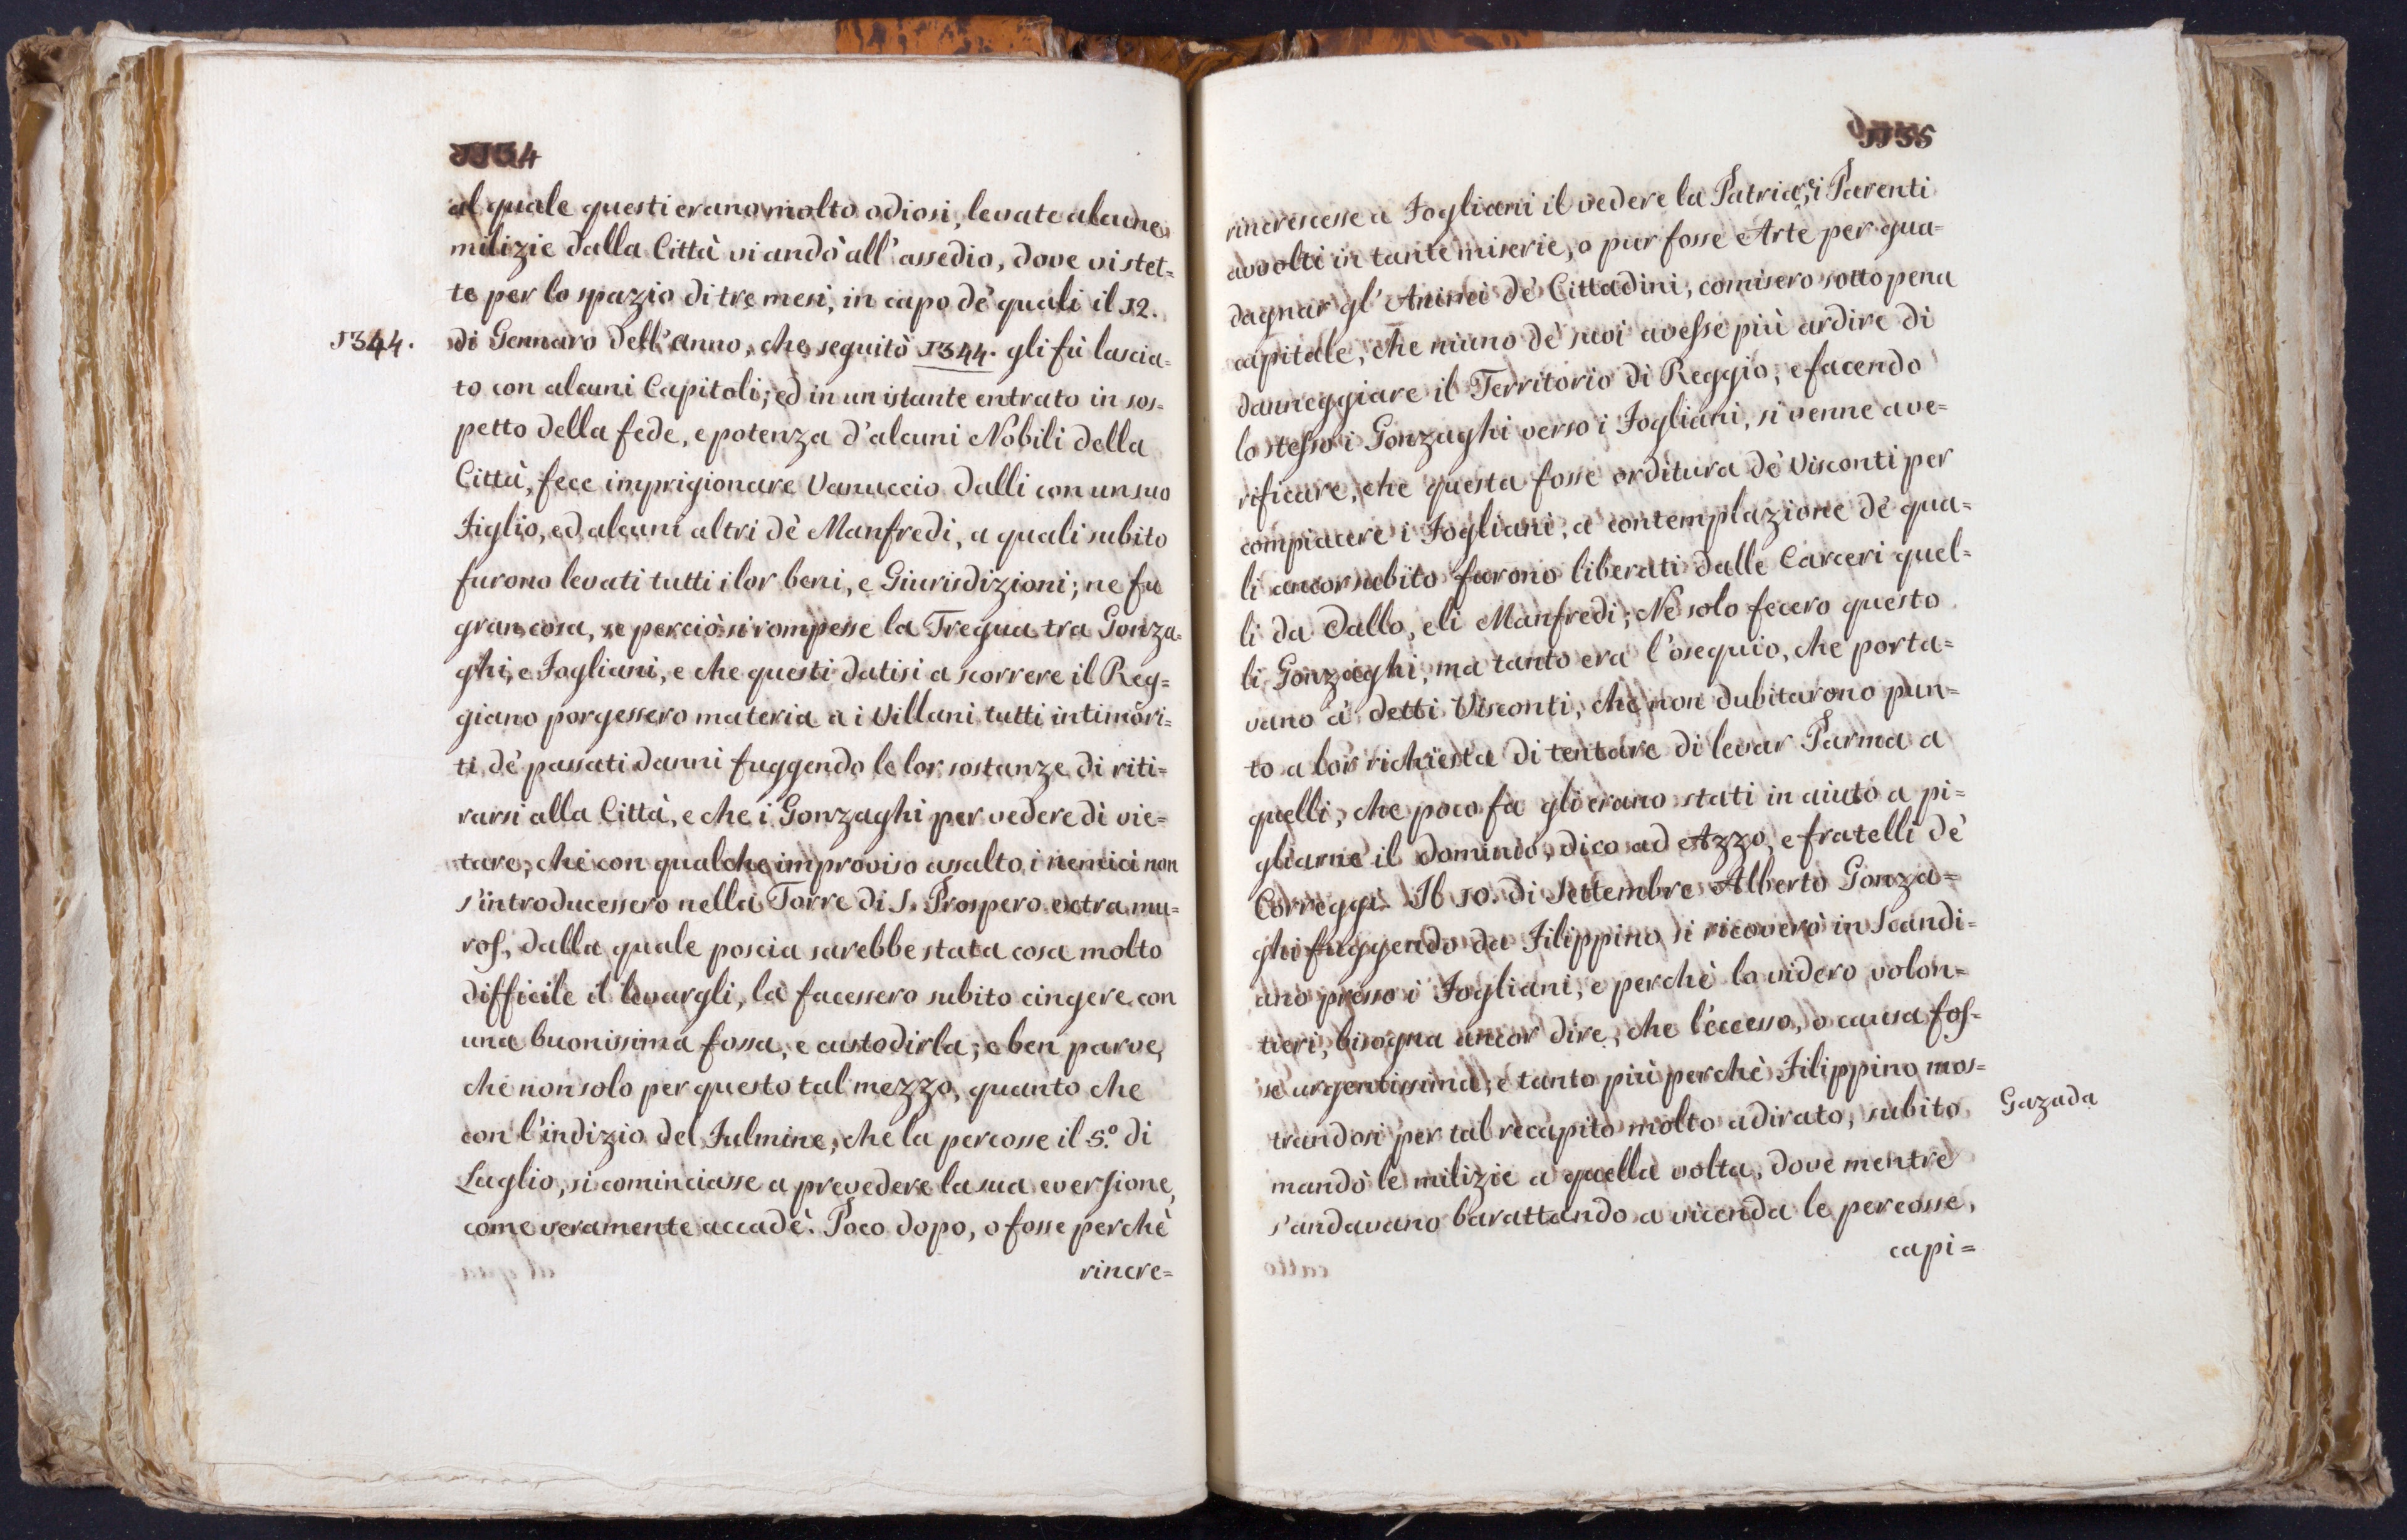 1134
al quale questi erano molto odiosi, levate alcune
milizie dalla Città vi andò all'assedio, dove vi stet=
te per lo spazio di tre mesi, in capo de' quali il 12.
1344.
di Gennaro dell'anno, che seguitò 1344. gli fù lascia=
to con alcuni Capitoli; ed in un istante entrato in sos=
petto della fede, e potenza d'alcuni Nobili della
Città, fece imprigionare Vanuccio Dalli con un suo
Figlio, ed alcuni altri dè Manfredi, a quali subito
furono levati tutti i lor beni, e Giurisdizioni; ne fu
gran cosa, se perciò si rompesse la Tregua tra Gonza=
ghi, e Fogliani, e che questi datisi a scorrere il Reg=
giano porgessero materia a i Villani tutti intimori=
ti dè passati danni fuggendo le lor sostanze di riti=
rarsi alla Città, e che i Gonzaghi per vedere di vie=
tare, che con qualche improviso assalto i nemici non
s'introducessero nella Torre di S. Prospero extra mu=
ros, dalla quale poscia sarebbe stata cosa molto
difficile il levargli, la facessero subito cingere con
una buonissima fossa, e custodirla; e ben parve,
che non solo per questo tal mezzo, quanto che
con l'indizio del Fulmine, che la percosse il 5.º di
Luglio, si cominciasse a prevedere la sua eversione,
come veramente accadè. Poco dopo, o fosse perchè
rincre=
1135
rincrescesse a Fogliani il vedere la Patria, e i Parenti
avvolti in tante miserie, o pur fosse Arte per gua=
dagnar gl'Animi dè Cittadini, comisero sotto pena
capitale, che niuno dè suoi avesse più ardire di
danneggiare il Territorio di Reggio; e facendo
lo stesso i Gonzaghi verso i Fogliani, si venne a ve=
rificare, che questa fosse orditura dè Visconti per
compiacere i Fogliani, a contemplazione dè qua=
li ancor subito furono liberati dalle Carceri quel=
li da Dallo, e li Manfredi; Nè solo fecero questo
li Gonzaghi, ma tanto era l'osequio, che porta=
vano à detti Visconti, che non dubitarono pun=
to a lor richiesta di tentare di levar Parma a
quelli, che poco fa gli erano stati in aiuto a pi=
gliarne il dominio, dico ad Azzo, e fratelli dè
Correggi. Il 10. di Settembre Alberto Gonza=
ghi fuggendo da Filippino si ricoverò in Scandi=
ano presso i Fogliani, e perchè lo videro volon=
tieri, bisogna ancor dire, che l'eccesso, o causa fos=
se urgentissima; e tanto più perchè Filippino mos=
Gazada
trandosi per tal recapito molto adirato, subito
mandò le milizie a quella volta, dove mentre
s'andavano barattando a vicenda le percosse,
capi=